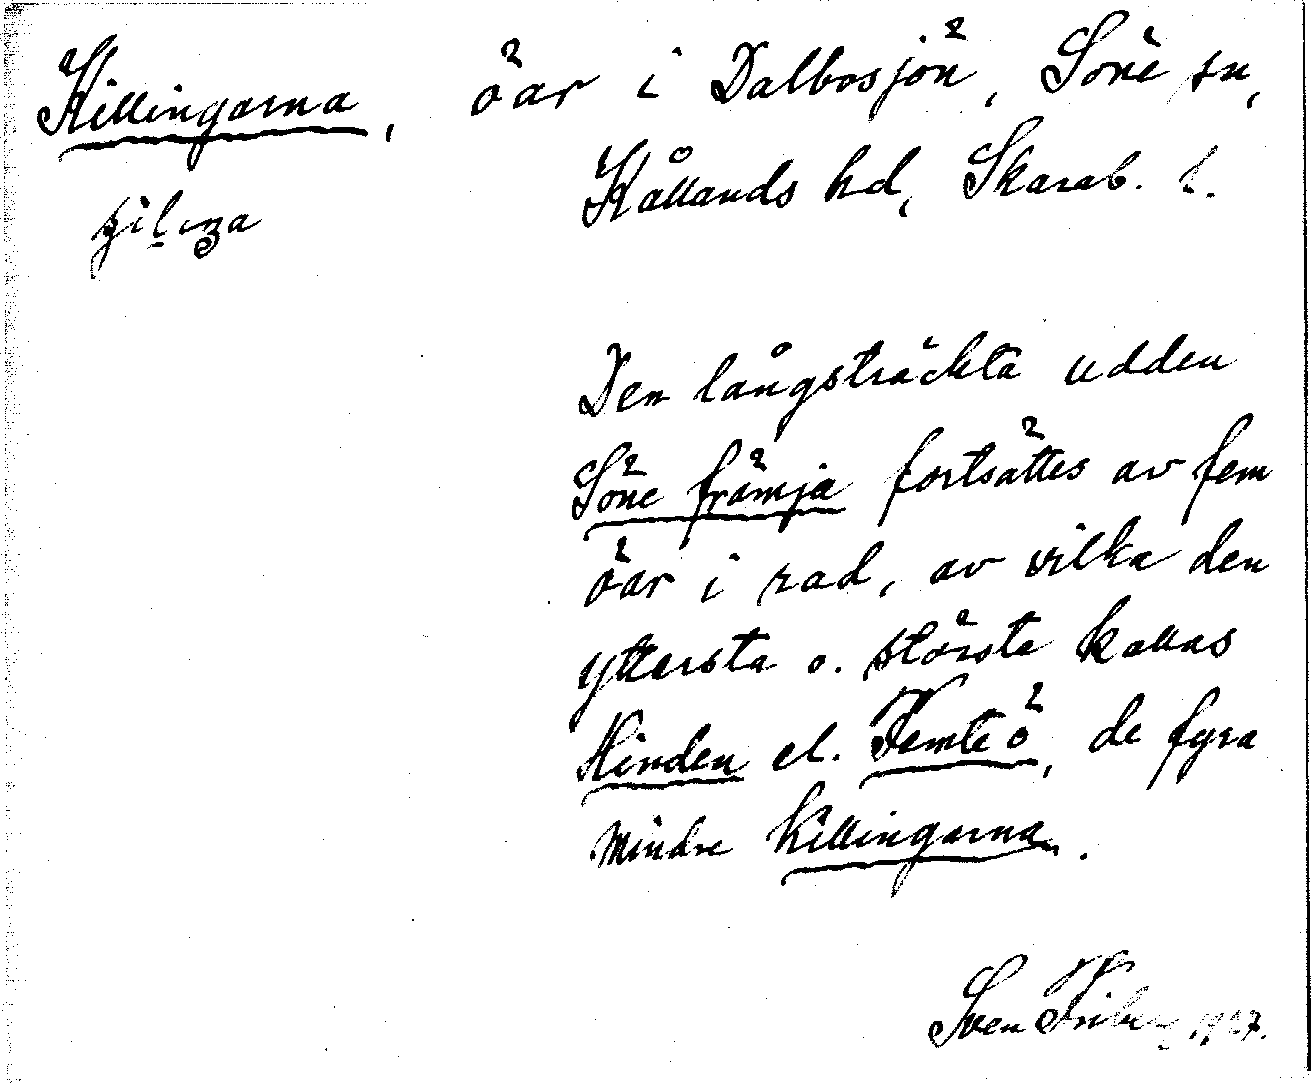 Killingarna, öar i Dalbosjön, Söne sn,
Kållands hd, Skarab. l.
Den långsträckta udden
Söne främja fortsättes av fem
öar i rad, av vilka den
yttersta o. största kallas
Hinden el. Femte ö, de fyra
mindre killingarna.
Sven Friberg